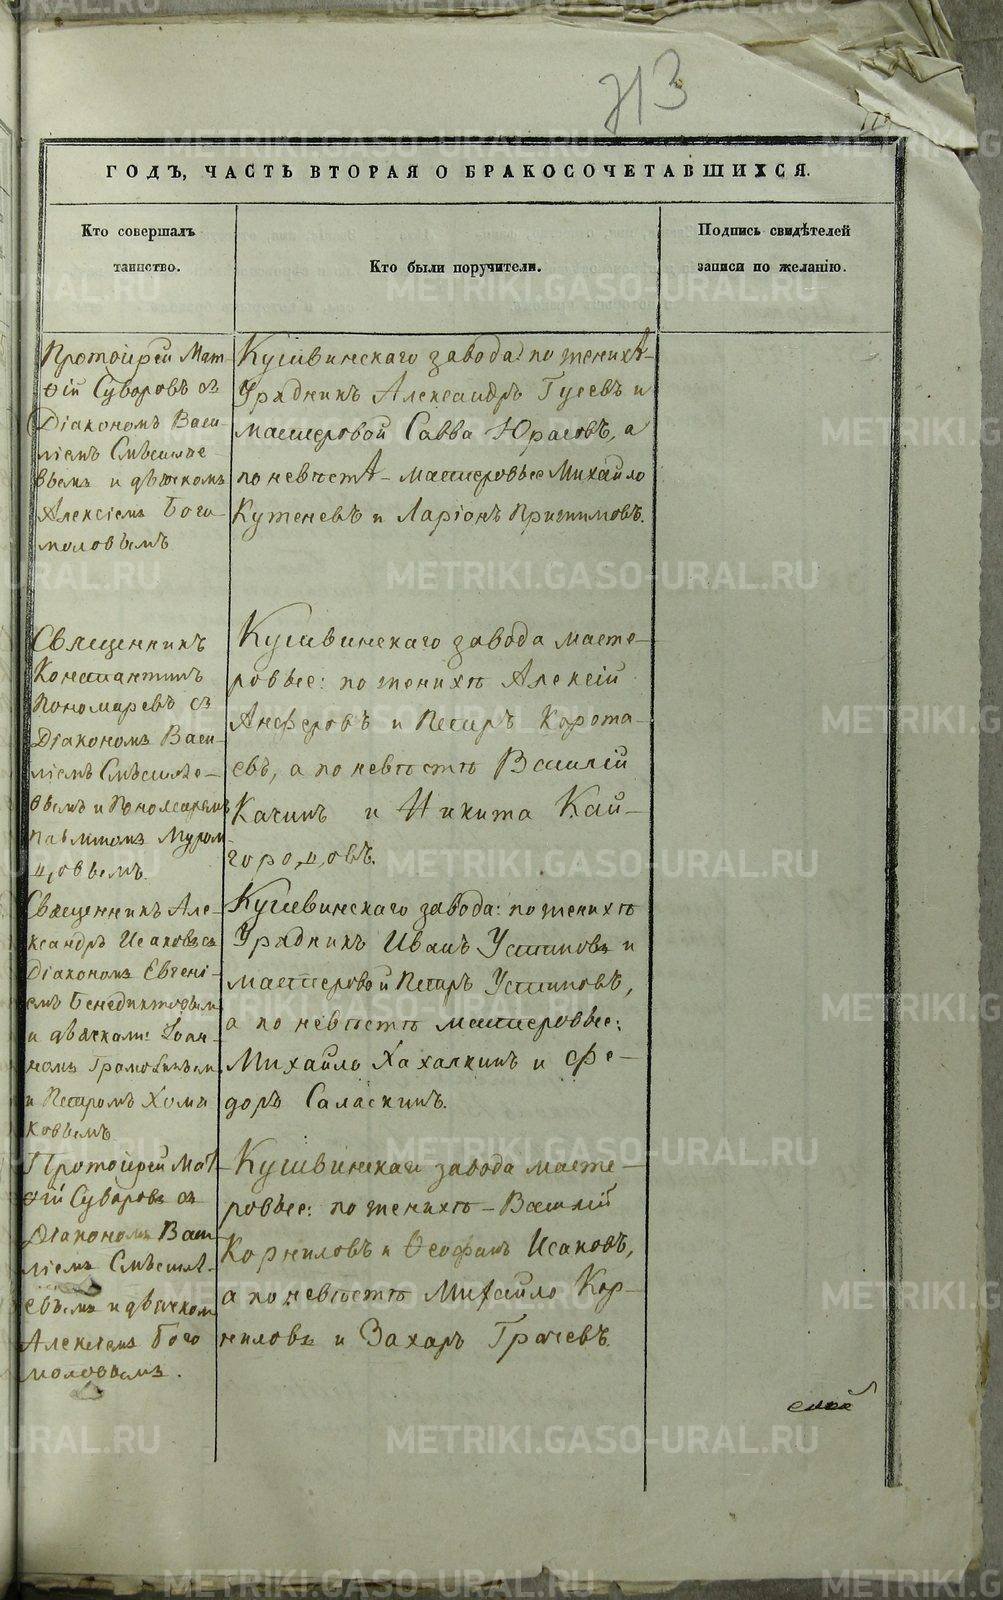 713
ГОДЪ, ЧАСТЬ ВТОРАЯ О БРАКОСОЧЕТАВШИХСЯ.
Кто совершалъ
таинство.
Кто были поручители.
Подпись свидѣтелей
записи по желанію.
Протоіерей Мат-
ѳій Суворовъ съ
Діакономъ Васи-
ліемъ
вымъ и дьячкомъ
Алексіемъ Бого-
моловымъ
Кушвинскаго завода: по женихѣ-
Урядникъ Александръ Гусевъ и
мастеровой Савва Юрасовъ, а
по невѣстѣ - мастеровые Михайло
Кутеневъ и Ларіонъ
Священникъ
Константинъ
Пономаревъ съ
Діакономъ Васи-
ліемъ
вымъ и Пономаремъ
Муром-
цовымъ.
Кушвинскаго завода масте-
ровые: по женихѣ Алексій
Анферовъ и Петръ Корота-
евъ, а по невѣстѣ Василій
Качинъ и Никита Кай-
городцовъ.
Священникъ Але-
ксандръ Исаковъ съ
Діакономъ Евгені-
емъ Бенедиктовымъ
и дьячками: Іоан-
номъ
и Петромъ Хома
ковымъ
Кушвинскаго завода: по женихѣ
Урядникъ Иванъ Устиновъ и
мастеровой Петръ Устиновъ,
а по невѣстѣ мастеровые:
Михайло Хахалкинъ и Фе-
доръ Саласкинъ.
Протоіерей Мат-
ѳій Суворовъ съ
Діакономъ Васи
ліемъ
евымъ и дьячком
Алексіемъ Бого
моловымъ.
Кушвинскаго завода масте-
ровые: по женихѣ - Василій
Корниловъ и Ѳеофанъ Исаковъ,
а по невѣстѣ Михайло Кор-
ниловъ и Захаръ Грачевъ.
METRIKI.GASO-URAL.RU